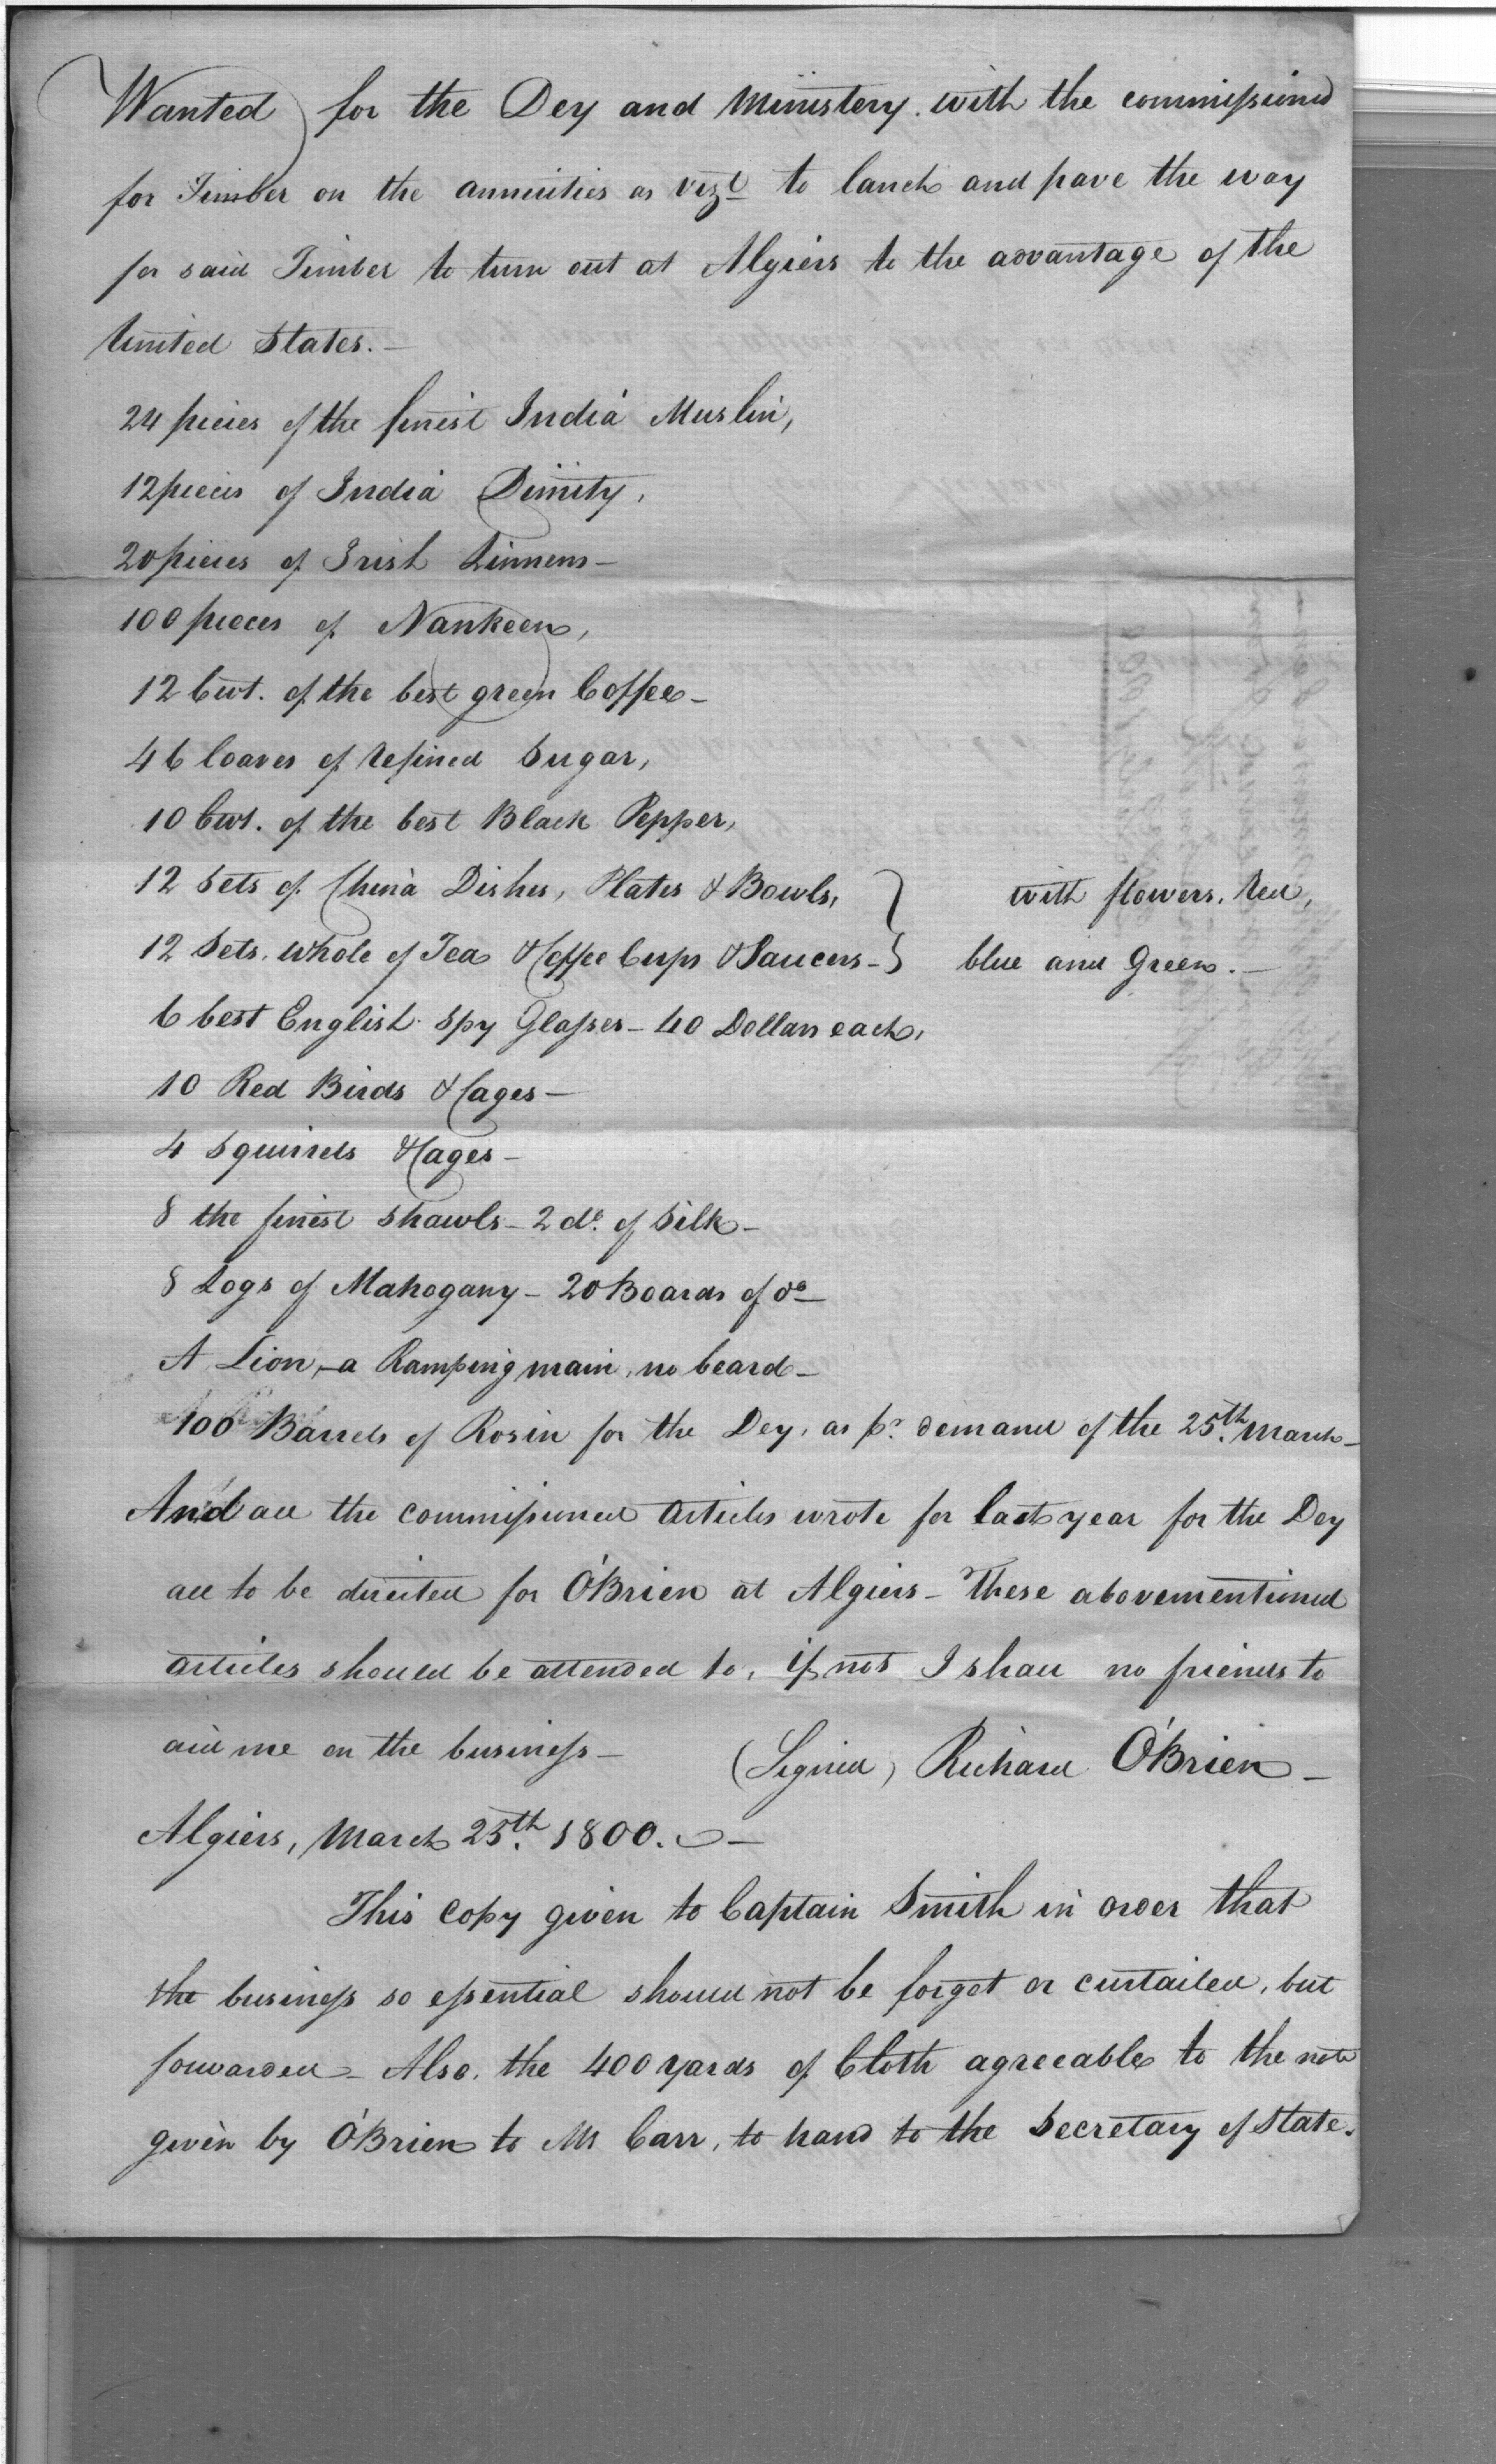 Wanted for the Dey and Ministery. with the commissioned
for Timber on the annuities as vizt to lanch and pave the way
for said Timber to turn out at Algiers to the advantage of the
United States.—
24 pieces of the finest India Muslin,
12 pieces of India Dimity,
20 pieces of Irish Linnens—
100 pieces of Nankeen,
12 Cwt. of the best green Coffee—
46 loaves of refined Sugar,
10 Cwt. of the best Black Pepper,
12 Sets of China Dishes, Plates & Bowls, } with flowers, Red,
12 Sets, whole of Tea & Coffee Cups & Saucers— } blue and Green.—
6 best English Spy Glasses— 40 Dollars each,
10 Red Birds & Cages—
4 Squirrels & Cages—
8 the finest Shawls— 2 do. of Silk—
8 Logs of Mahogany— 20 Boards of do—
A Lion,—a Ramping main, no beard—
100 Barrels of Rosin for the Dey, as pr. demand of the 25th. March—
And all the commissioned articles wrote for last year for the Dey
all to be directed for O'Brien at Algiers— These abovementioned
articles should be attended to, if not, I shall no friends to
aid me on the business— (Signed) Richard O'Brien—
Algiers, March 25th. 1800.—
This copy given to Captain Smith in order that
the business so essential should not be forgot or curtailed, but
forwarded— Also, the 400 yards of Cloth agreeable to the note
given by O'Brien to Mr Carr, to hand to the Secretary of State.